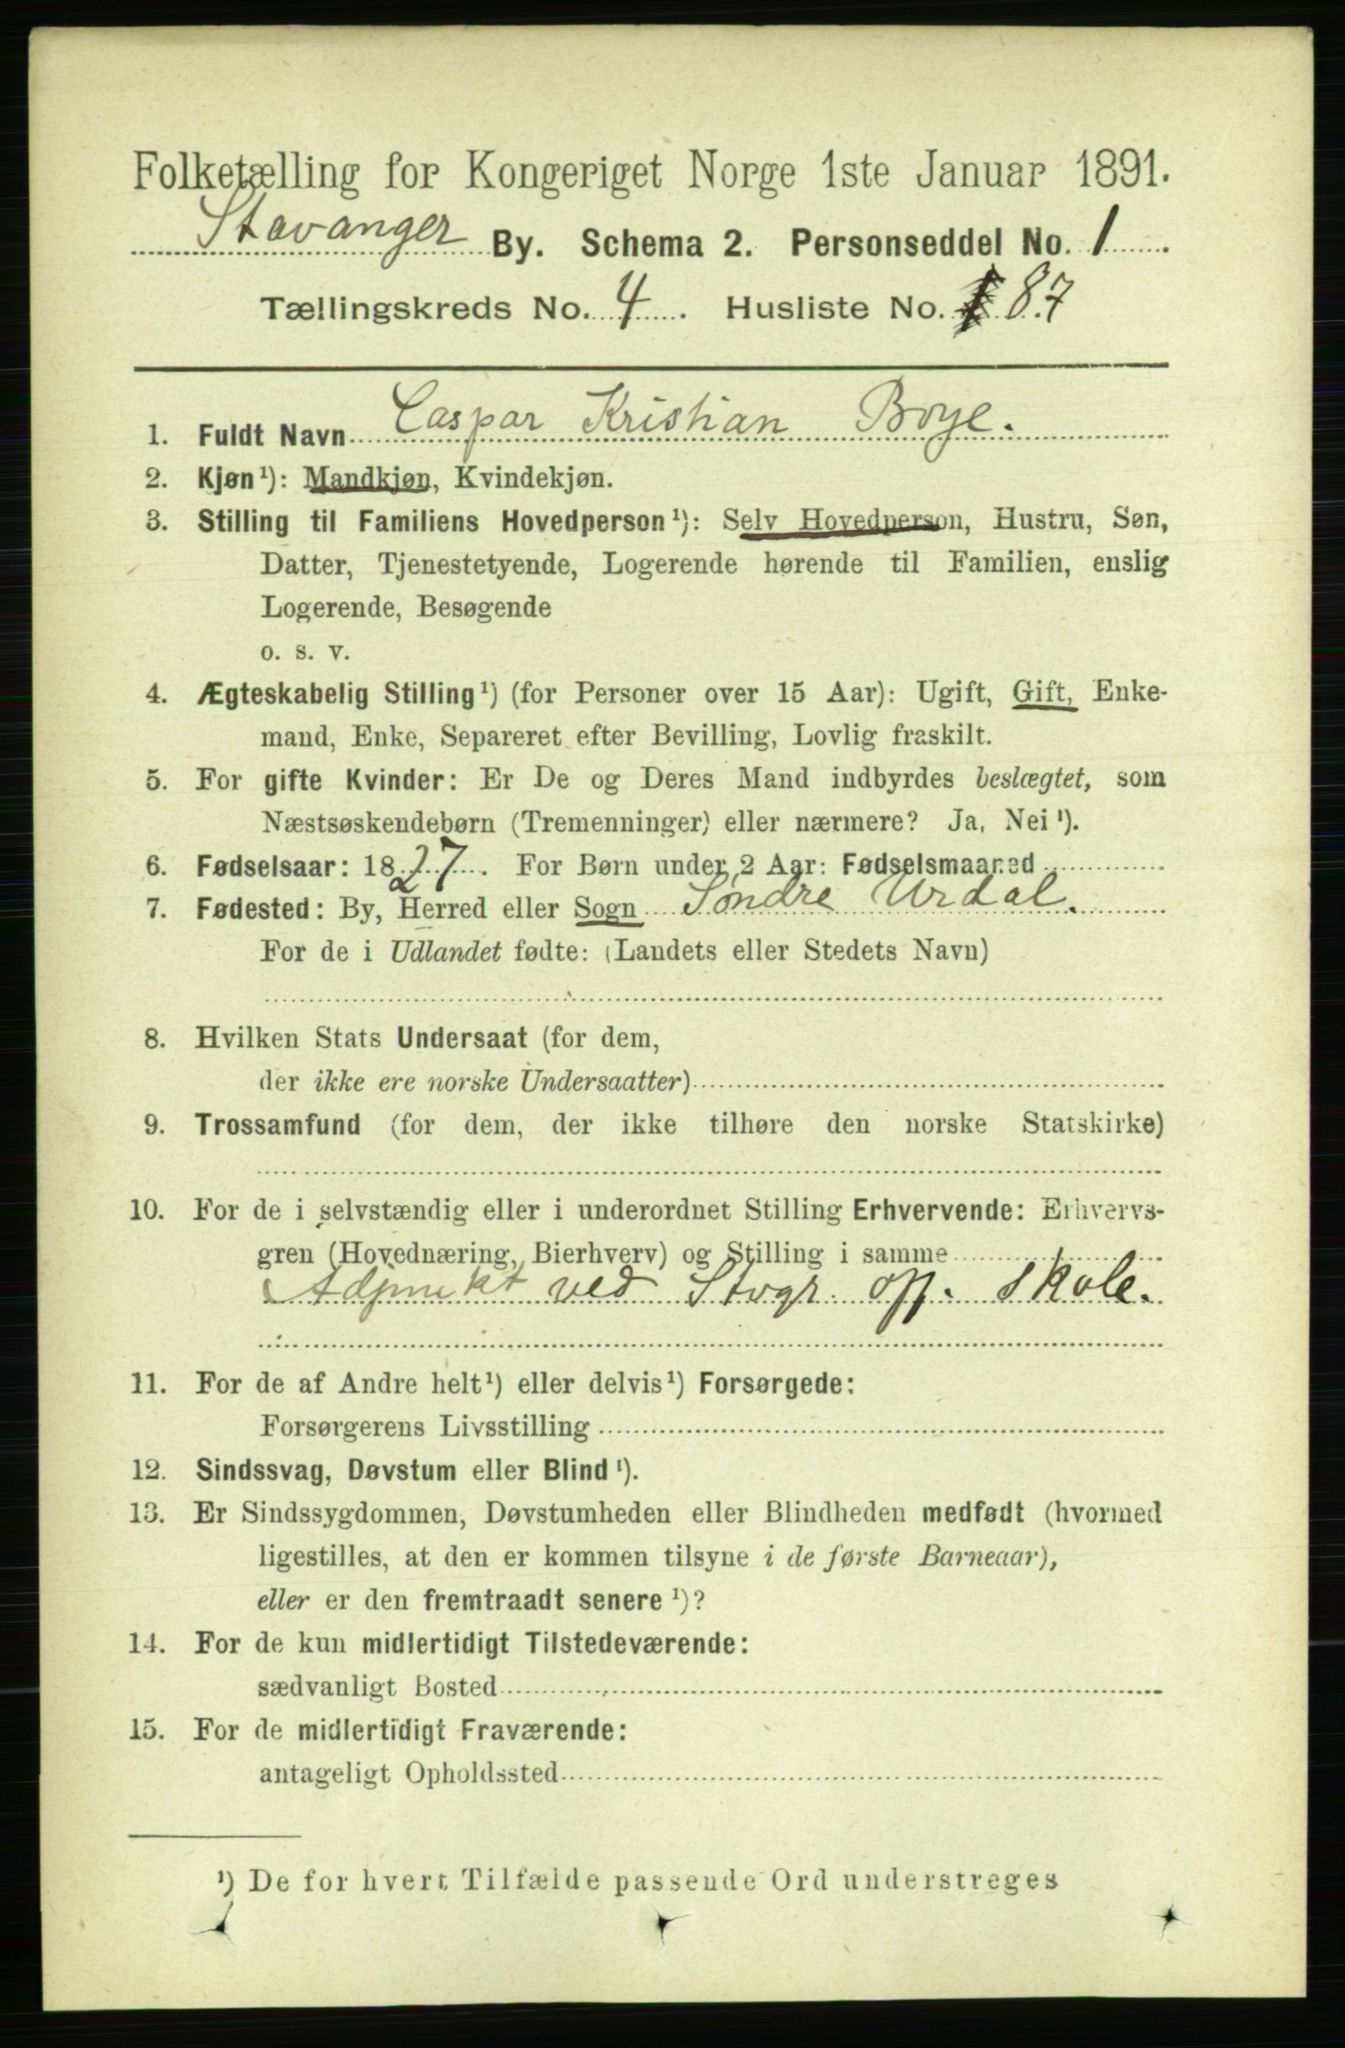 Folketælling for Kongeriget Norge 1ste Januar 1891.
Stavanger By. Schema 2. Personseddel No. 1
Tællingskreds No. 4. Husliste No. 87
1. Fuldt Navn Caspar Kristian Boye.
2. Kjøn¹): Mandkjøn, Kvindekjøn.
3. Stilling til Familiens Hovedperson¹): Selv Hovedperson, Hustru, Søn,
Datter, Tjenestetyende, Logerende hørende til Familien, enslig
Logerende, Besøgende
o. s. v.
4. Ægteskabelig Stilling¹) (for Personer over 15 Aar): Ugift, Gift, Enke-
mand, Enke, Separeret efter Bevilling, Lovlig fraskilt.
5. For gifte Kvinder: Er De og Deres Mand indbyrdes beslægtet, som
Næstsøskendebørn (Tremenninger) eller nærmere? Ja, Nei¹).
6. Fødselsaar: 1827. For Børn under 2 Aar: Fødselsmaaned
7. Fødested: By, Herred eller Sogn Søndre Urdal.
For de i Udlandet fødte: (Landets eller Stedets Navn)
8. Hvilken Stats Undersaat (for dem,
der ikke ere norske Undersaatter)
9. Trossamfund (for dem, der ikke tilhøre den norske Statskirke)
10. For de i selvstændig eller i underordnet Stilling Erhvervende: Erhvervs-
gren (Hovednæring, Bierhverv) og Stilling i samme
Adjunkt ved Stvgr. off. Skole.
11. For de af Andre helt¹) eller delvis¹) Forsørgede:
Forsørgerens Livsstilling
12. Sindssvag, Døvstum eller Blind¹).
13. Er Sindssygdommen, Døvstumheden eller Blindheden medfødt (hvormed
ligestilles, at den er kommen tilsyne i de første Barneaar),
eller er den fremtraadt senere¹)?
14. For de kun midlertidigt Tilstedeværende:
sædvanligt Bosted
15. For de midlertidigt Fraværende:
antageligt Opholdssted
¹) De for hvert Tilfælde passende Ord understreges